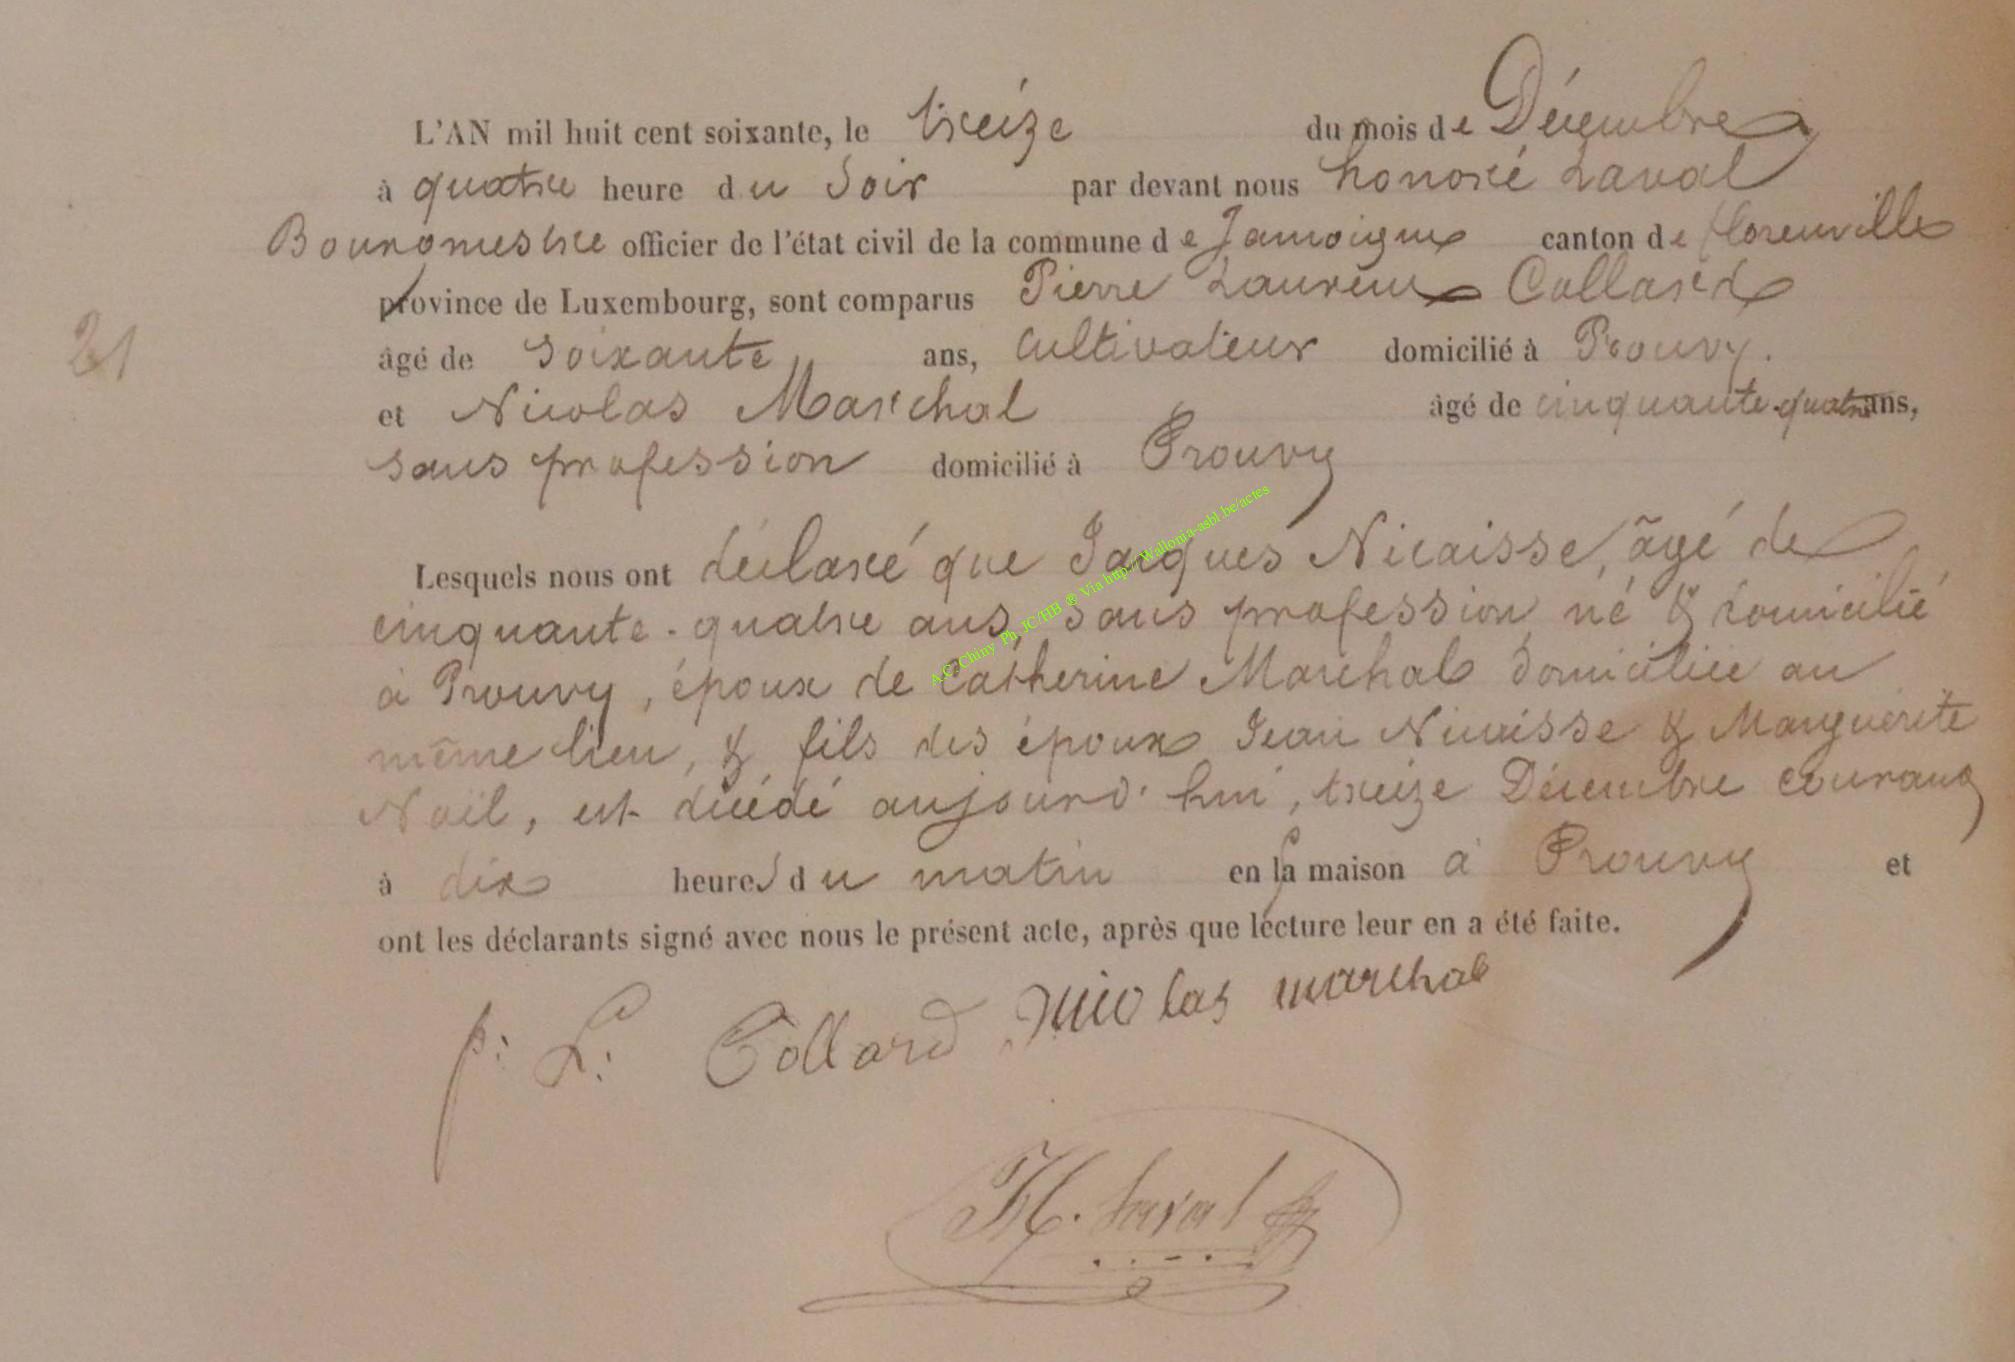 L'AN mil huit cent soixante, le treize du mois de Décembre
à quatre heure du Soir par devant nous honoré Laval
Bourgmestre officier de l'état civil de la commune de Jamoigne canton de florenville
province de Luxembourg, sont comparus Pierre Laurent Collard
21
âgé de soixante ans, cultivateur domicilié à Prouvy.
et Nicolas Maréchal âgé de cinquante-quatre ans,
sans profession domicilié à Prouvy
Lesquels nous ont déclaré que Jacques Nicaisse, âgé de
cinquante-quatre ans, sans profession, né & domicilié
à Prouvy, époux de Catherine Maréhal domiciliée au
même lieu, & fils des époux Jean Nicaisse & Marguerite
Noël, est décédé aujourd'hui, treize Décembre courant
à dix heures du matin en sa maison à Prouvy et
ont les déclarants signé avec nous le présent acte, après que lecture leur en a été faite.
p: L: Collard Nicolas marchal
H. Laval
A.C. Chiny Ph JC/HB ® Via http://Wallonia-asbl.be/actes